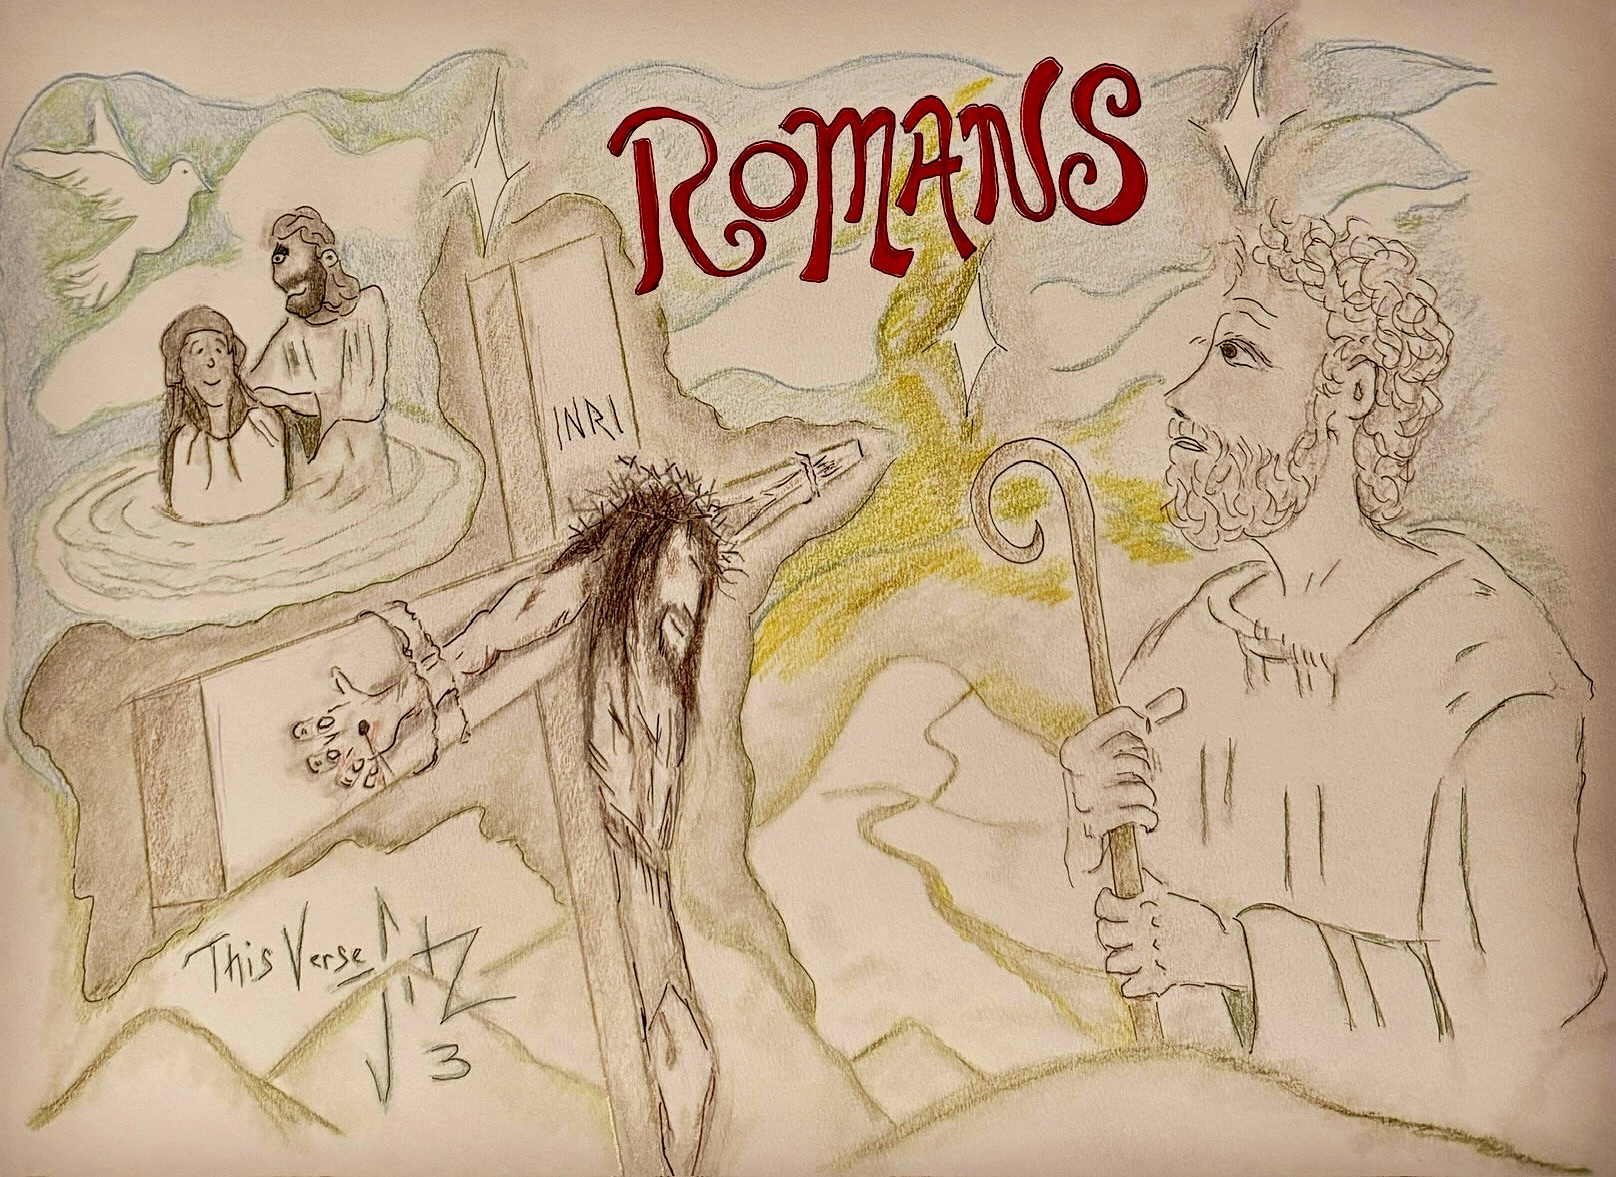 ROMANS
INRI
This Verse
3